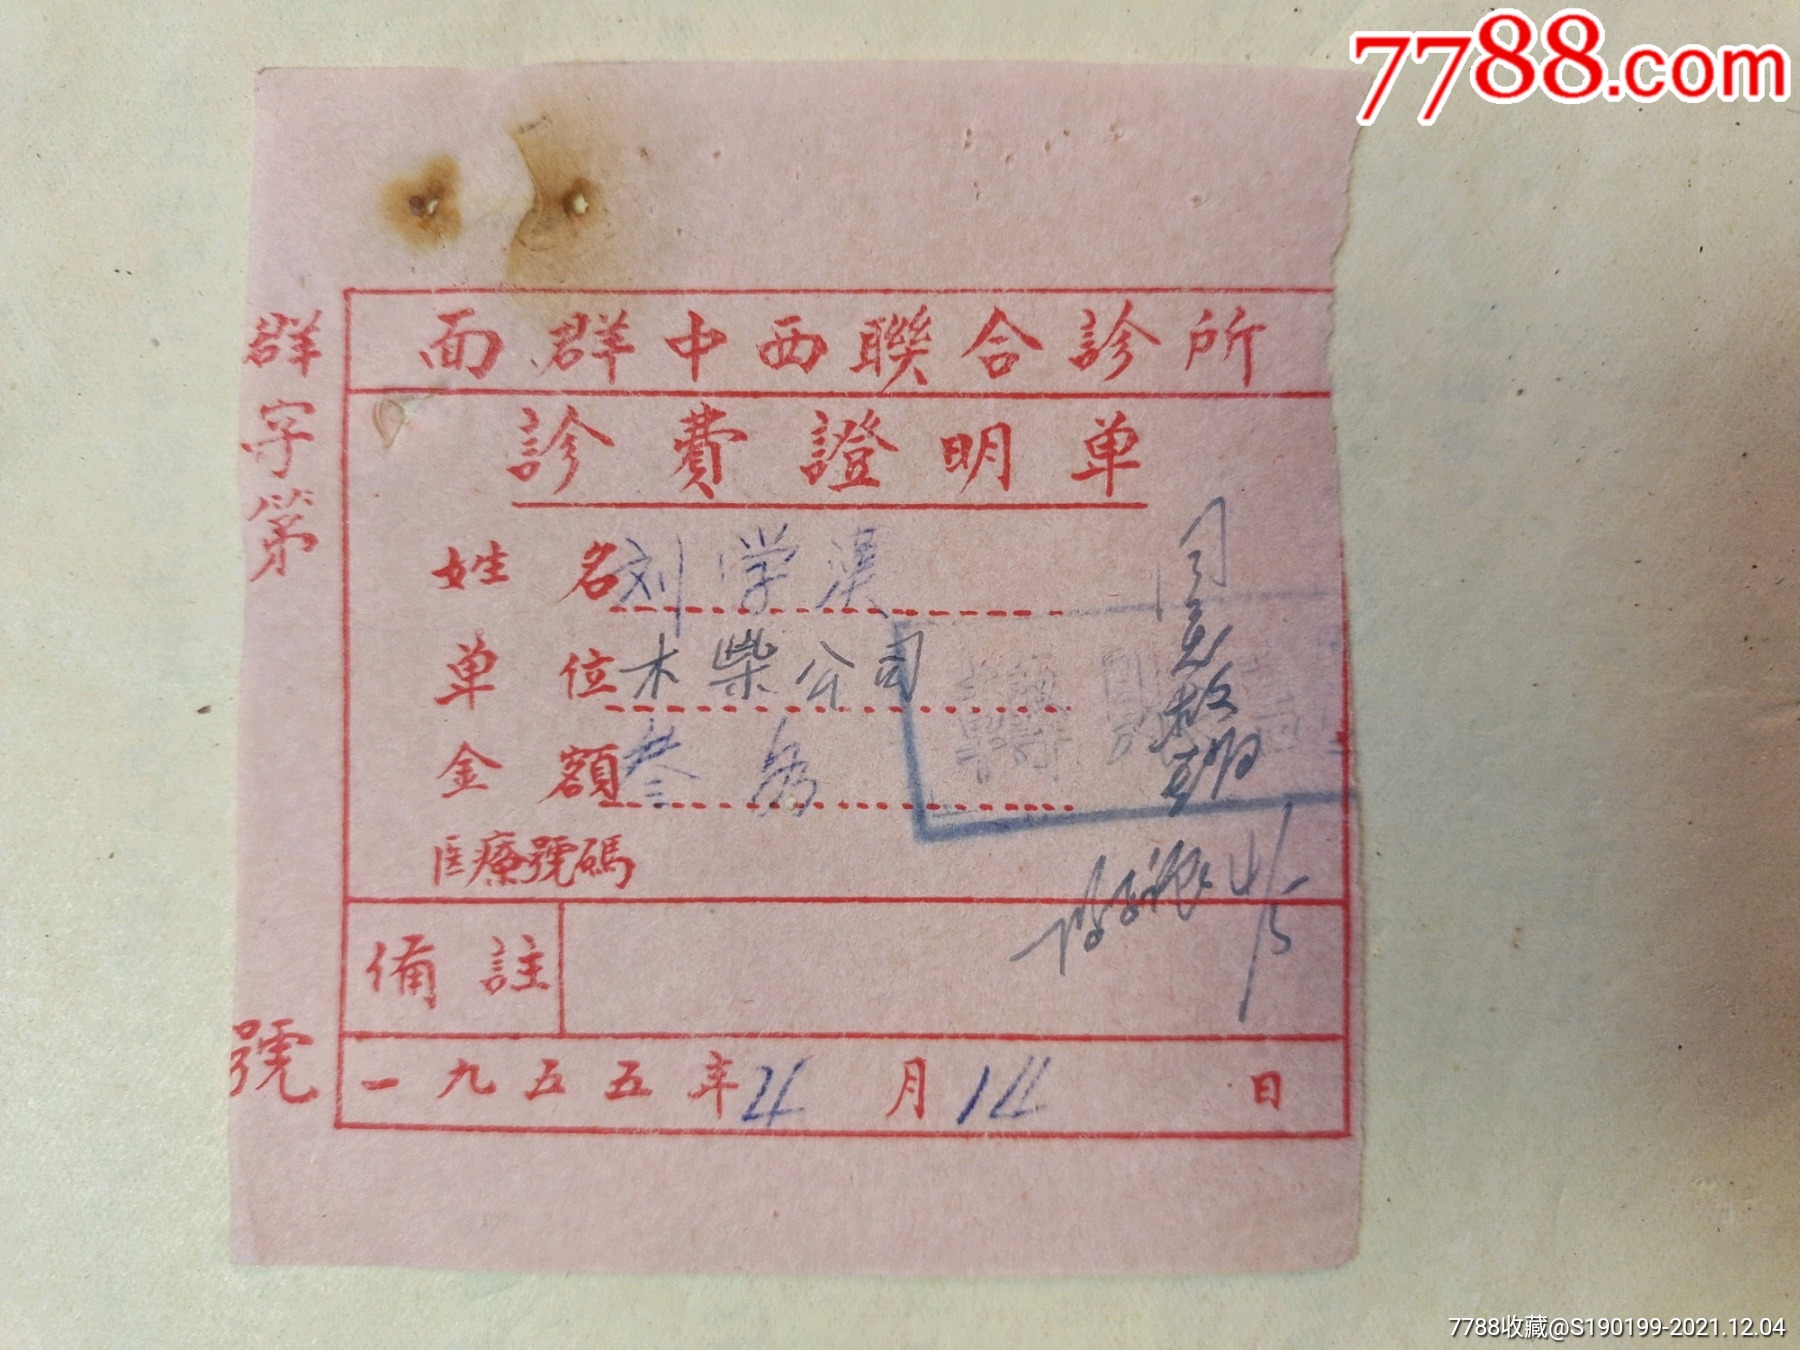 7788.com
面群中西聯合診所
診費證明单
群字第
號
姓名 刘学淇
单位 木柴公司
金額 叁角
医療號碼
同意报
4/5
備註
一九五五年4月14日
7788收藏@S190199-2021.12.04